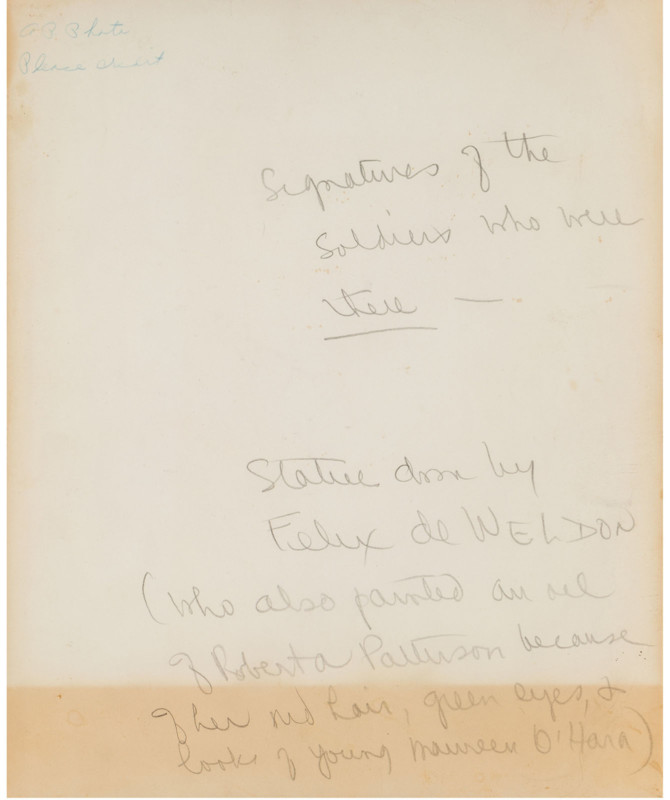 A.P. Photo
Please
Signatures of the
Soldiers who were
there —
Statue done by
Felix de WELDON
(who also painted an oil
of Roberta Patterson because
of her red hair, green eyes, &
looks of young Maureen O'Hara)